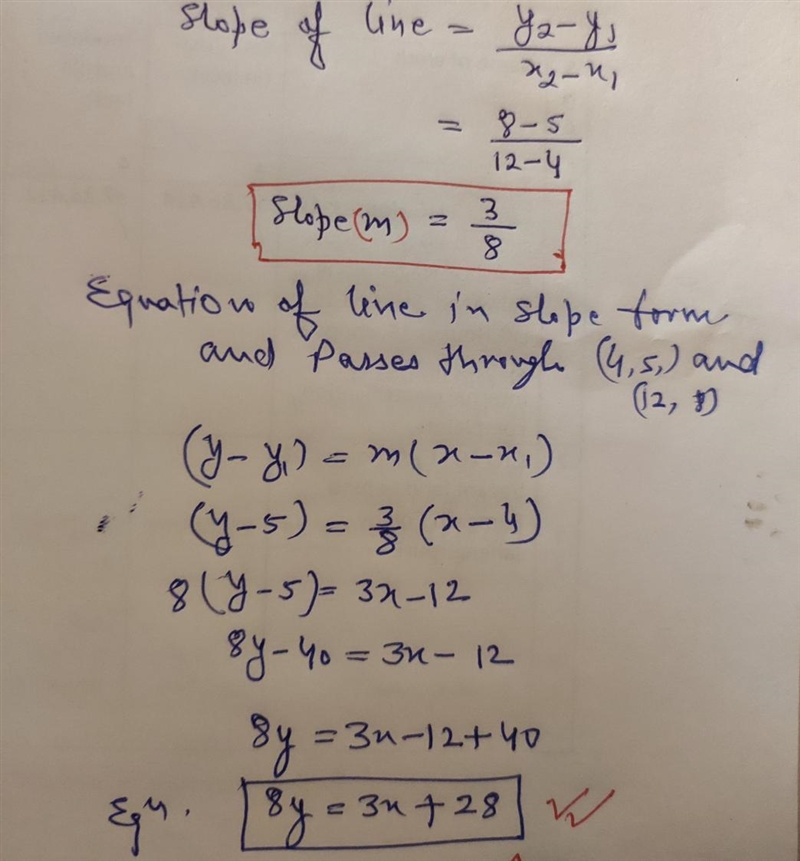 Slope of line = y₂-y₁/x₂-x₁
= 8-5/12-4
Slope(m) = 3/8
Equation of line in slope form
and Passes through (4,5,) and
(12, 8)
(y-y₁) = m(x-x₁)
(y-5) = 3/8 (x-4)
8(y-5) = 3x-12
8y-40 = 3x-12
8y = 3x-12+40
Eqn. 8y = 3x+28